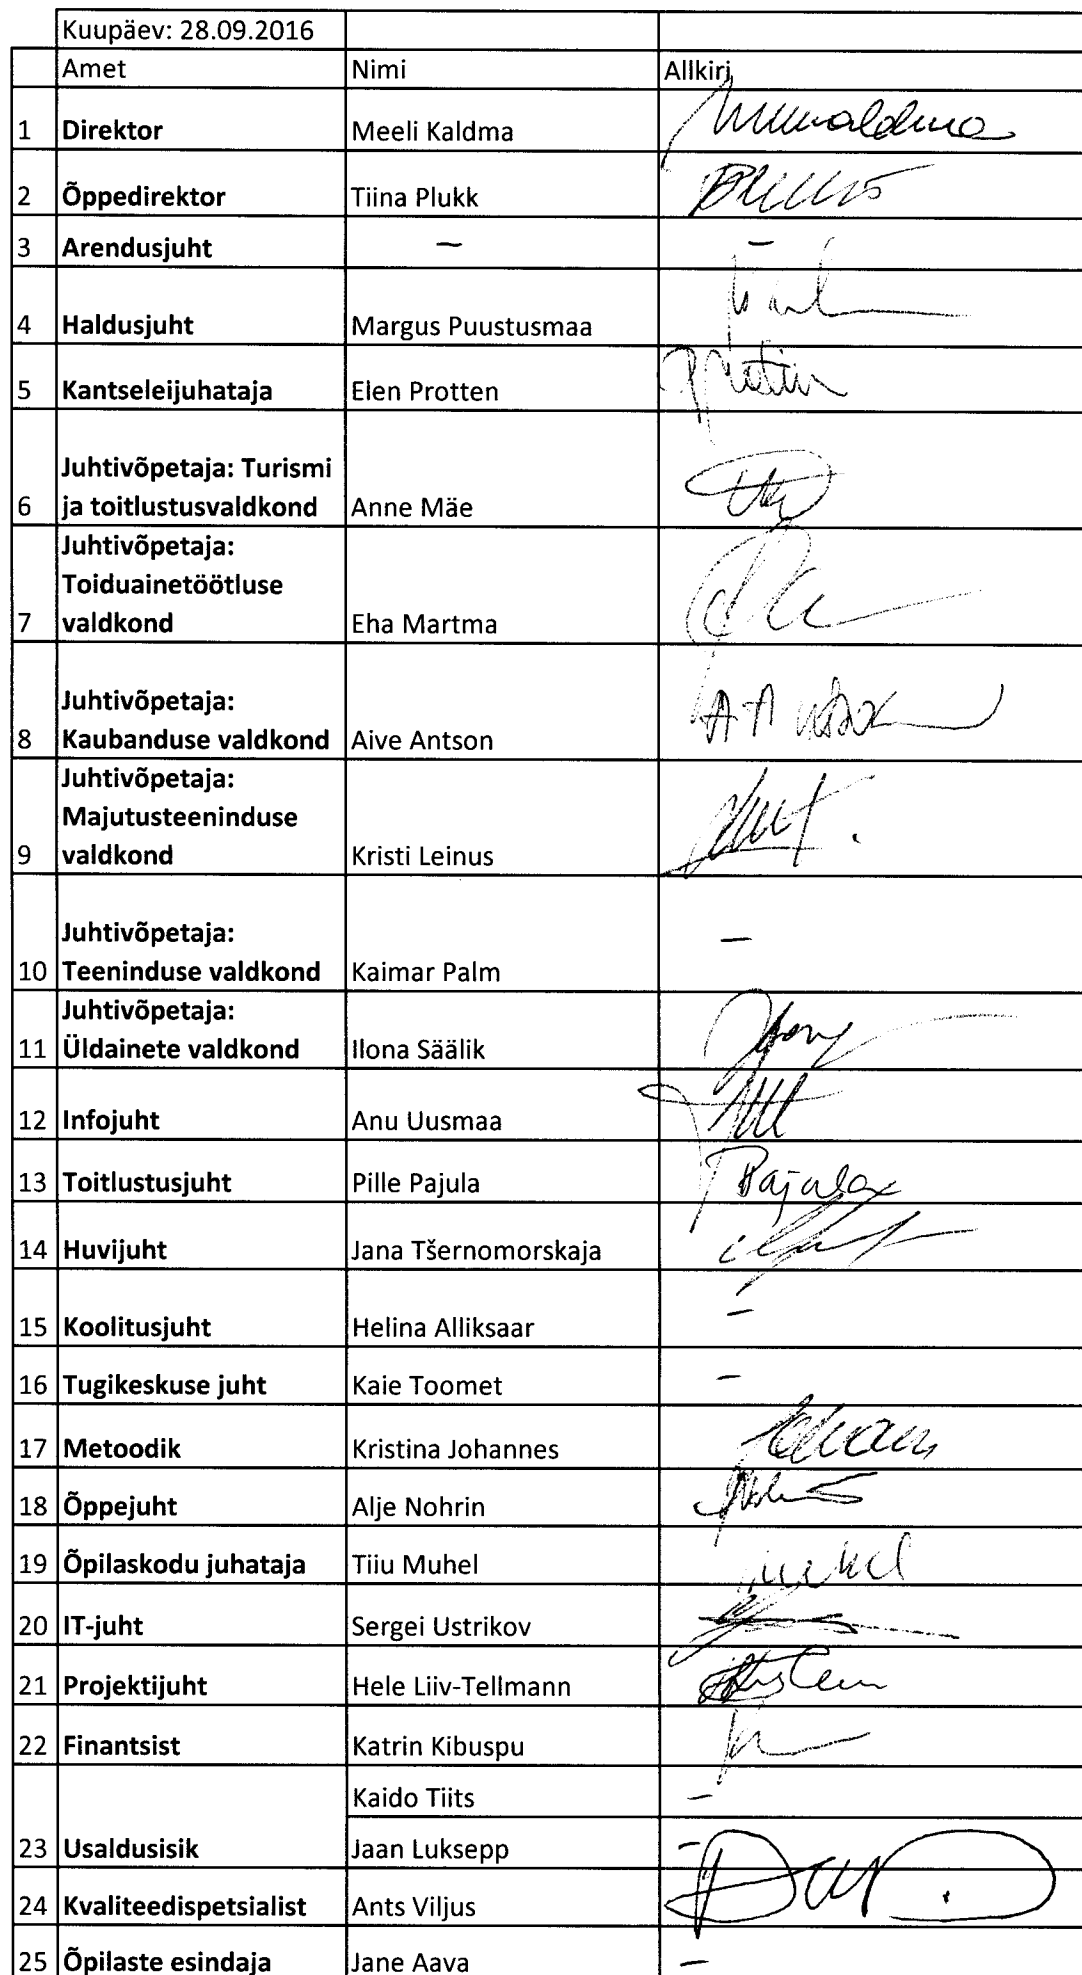 Kuupäev: 28.09.2016
Amet Nimi Allkiri
1 Direktor Meeli Kaldma
2 Õppedirektor Tiina Plukk
3 Arendusjuht — –
4 Haldusjuht Margus Puustusmaa
5 Kantseleijuhataja Elen Protten
Juhtivõpetaja: Turismi
6 ja toitlustusvaldkond Anne Mäe
Juhtivõpetaja:
Toiduainetöötluse
7 valdkond Eha Martma
Juhtivõpetaja:
8 Kaubanduse valdkond Aive Antson
Juhtivõpetaja:
Majutusteeninduse
9 valdkond Kristi Leinus
Juhtivõpetaja:
10 Teeninduse valdkond Kaimar Palm –
Juhtivõpetaja:
11 Üldainete valdkond Ilona Säälik
12 Infojuht Anu Uusmaa
13 Toitlustusjuht Pille Pajula Pajula
14 Huvijuht Jana Tšernomorskaja
15 Koolitusjuht Helina Alliksaar –
16 Tugikeskuse juht Kaie Toomet –
17 Metoodik Kristina Johannes
18 Õppejuht Alje Nohrin
19 Õpilaskodu juhataja Tiiu Muhel
20 IT-juht Sergei Ustrikov
21 Projektijuht Hele Liiv-Tellmann
22 Finantsist Katrin Kibuspu
Kaido Tiits –
23 Usaldusisik Jaan Luksepp –
24 Kvaliteedispetsialist Ants Viljus
25 Õpilaste esindaja Jane Aava –